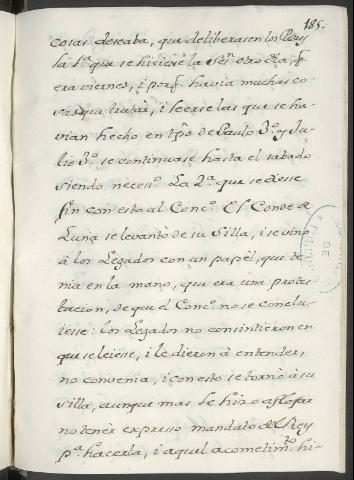 185.
cosas deseaba, que deliberasen los Pres,
la 1ª que se hiciese la Sesn otro dia, q.
era viernes, i porq. havia muchas co-
sas que tratar, i leerse las que se ha-
vian hecho en tpo de Paulo 3º y Ju-
lio 3º se continuase hasta el sabado
siendo neceso. La 2ª que se diese
fin con esto al Conco. El Conde de
Luna se levantò de su Silla, i se vino
à los Legados con un papèl, que te-
nia en la mano, que era una protes-
tacion, de que el Conco no se conclu-
iesse: los Legados no consintieron en
que se leiese, i le dieron à entender,
no convenia, i con esto se tornò à su
silla, aunque mas le hizo afloxar
no tenèr expresso mandato del Rey
pª hacerla, i aquel acometimto hi-
DE